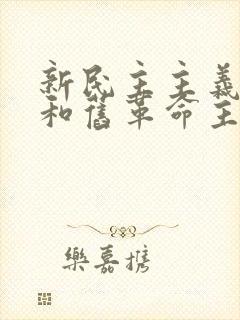 新民主主義
和舊革命主
樂嘉携